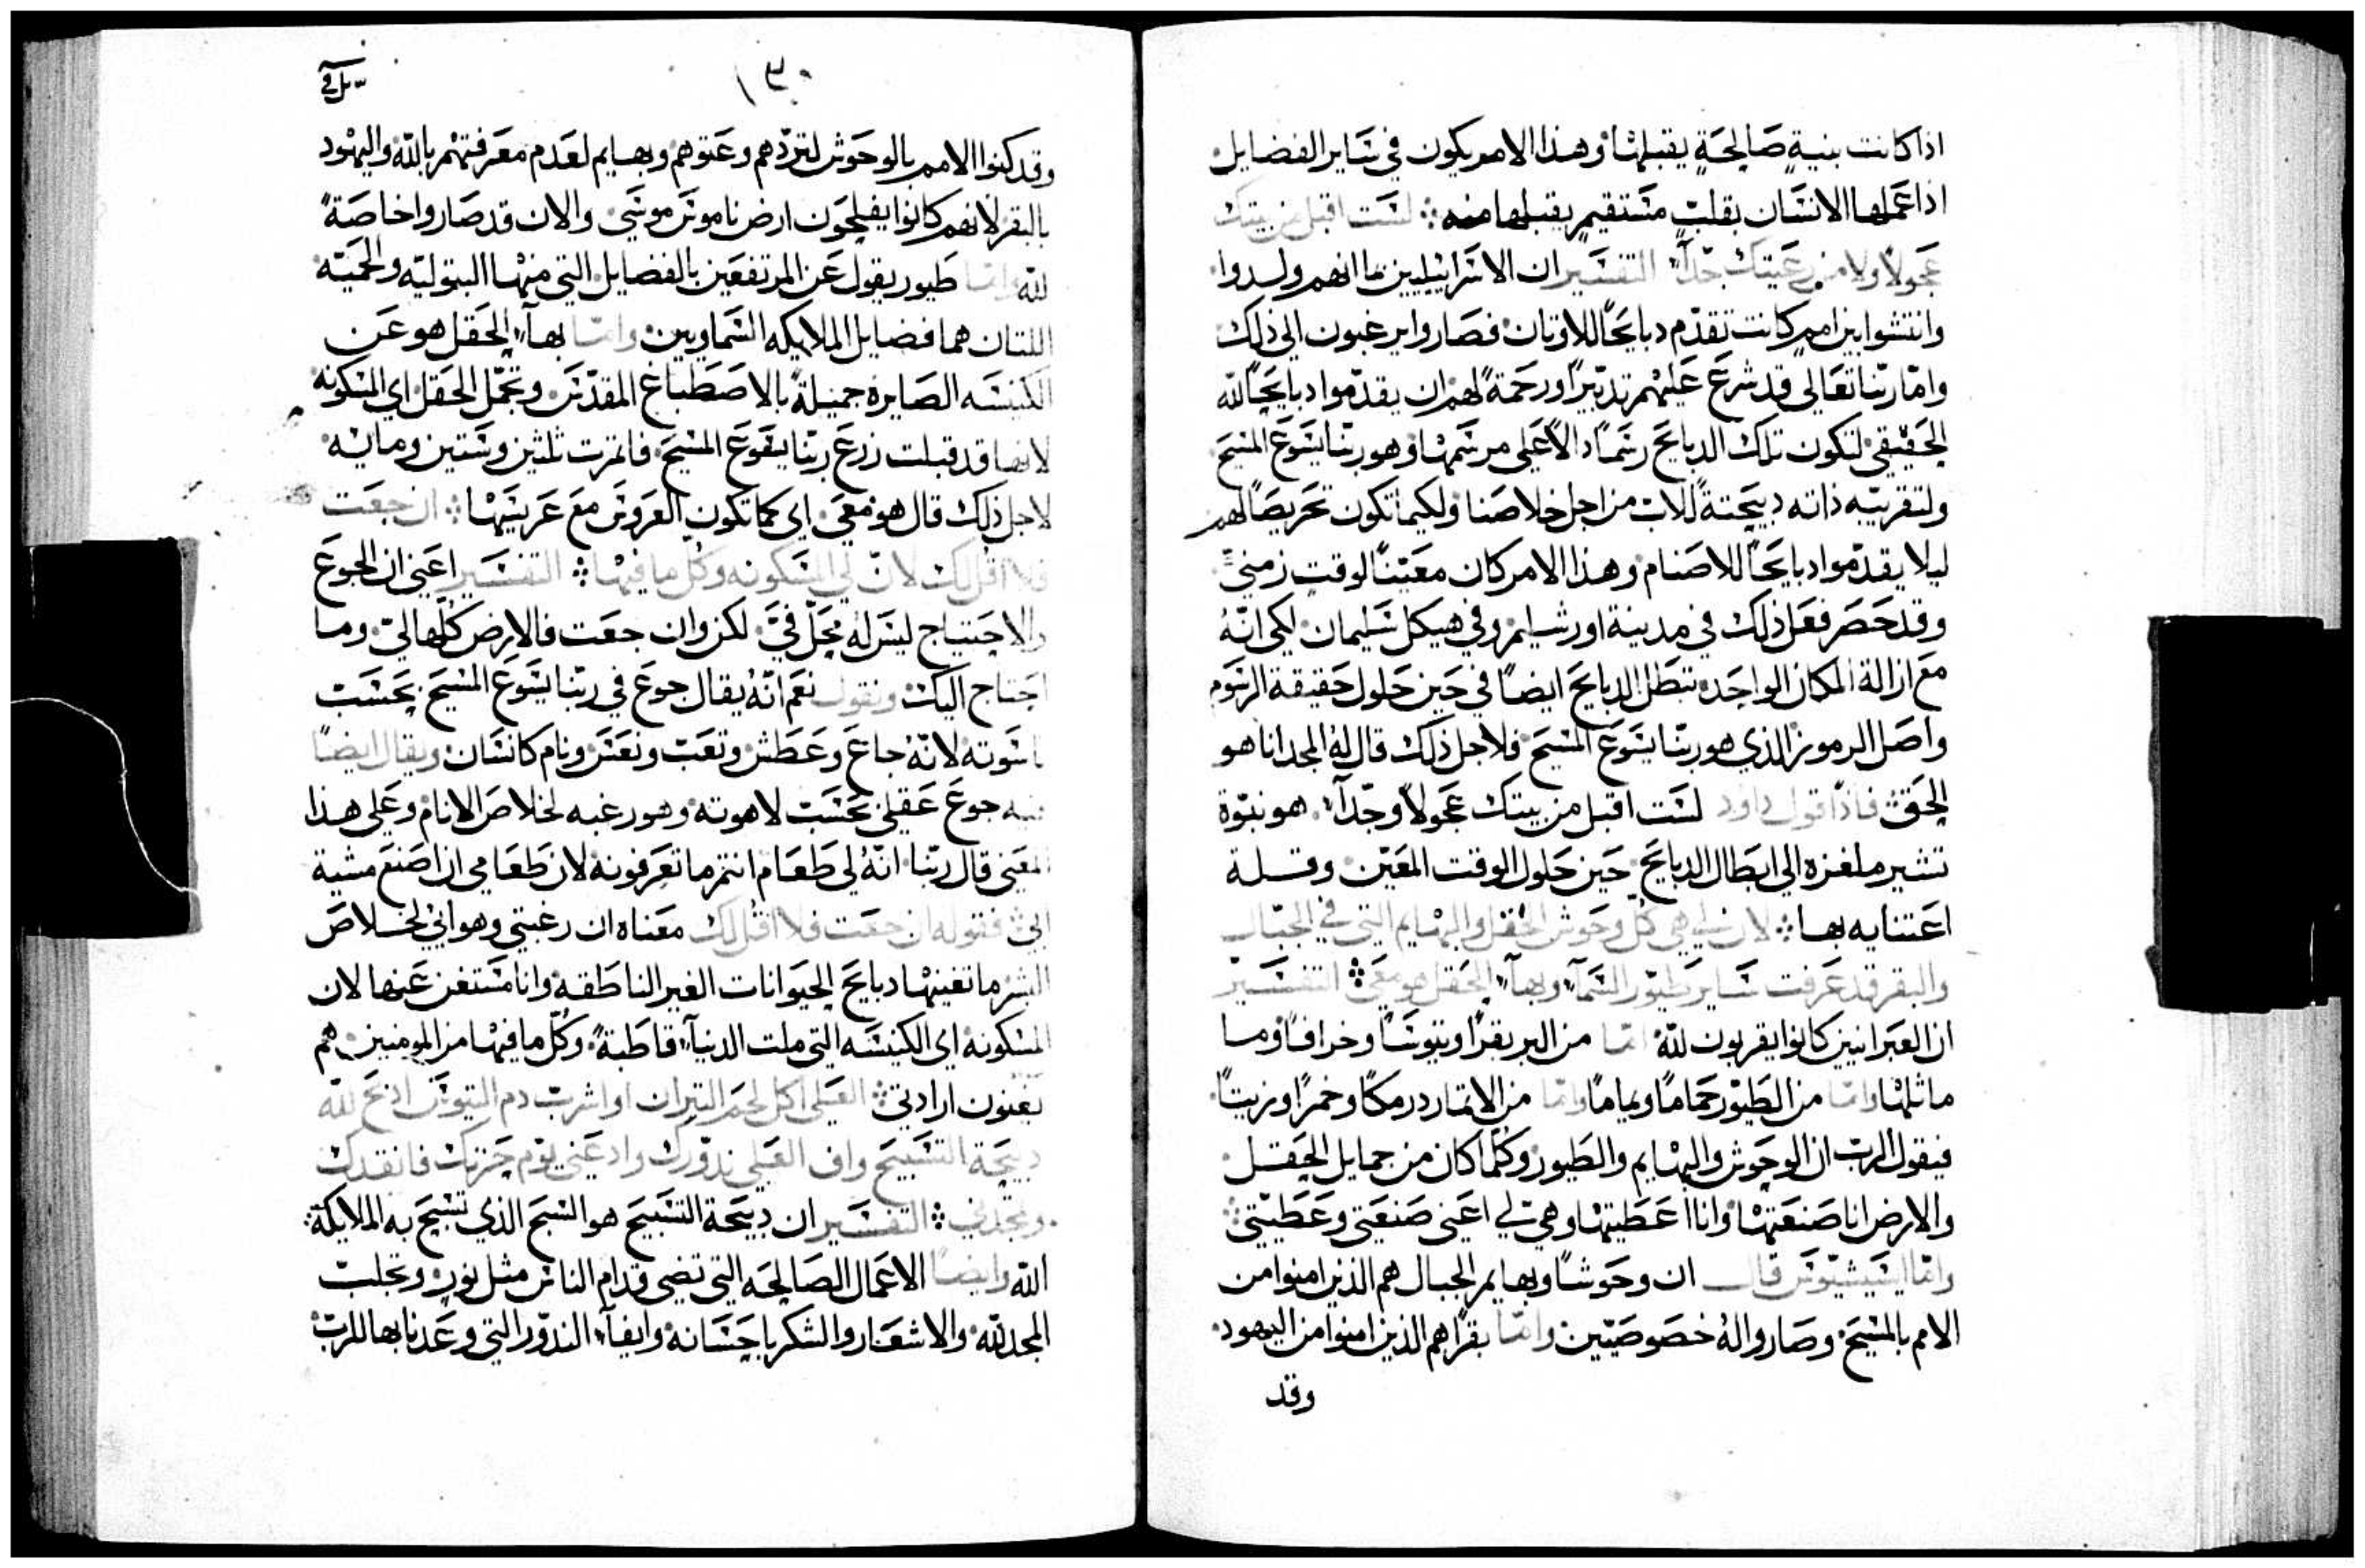 اذا كانت بنيةٍ صَالحَةٍ يقبلهَا وهذا الامر يكون في سَاير الفضايل
اذا عَملها الانسَان بقلبٍ مسَتقيمٍ يقبلها منه ۞ لسَت اقبل من بيتك
عجولاً ولا من رعَيتك جدآءً التفسَير ان الاسَراييليين بما انهم ولدوا
وانتشوا بين اممٍ كانت تقدّم دبايحَاً للاوتان فصَاروا يرغبون الى ذلك
وامّا ربّنا تعَالى قد شرعَ عَليهم تدبّيراً ورحمَةً لهم ان يقدّموا دبايحَاً لله
الحَقيقي لتكون تلك الدبايحَ رسَماً دالاً عَلى مرسَمهَا وهو ربّنا يسَوعَ المسَيحَ
ولتقريبه ذاته دبيحَتةً للاب من اجل خلاصَنا ولكيما تكون تحَريصَاً لهم
ليلا يقدّموا دبايحَاً للاصَنام وهذا الامر كان معَيّناً لوقتٍ زمنيٍّ
وقد حَصَر فعَل ذلك في مدينة اورشليم وفي هيكل سَليمان لكي انّهُ
معَ ازالة المكان الواحَد تبطَل الدبايحَ ايضَاً في حَين حَلول حَقيقة الرسَوم
واصَل الرموز الذي هو ربّنا يسَوعَ المسَيحَ فلاجل ذلك قال لهُ المجد انا هو
الحَق فاذاً قول داود لسَت اقبل من بيتك عجَولاً وجدّآء هو نبوّة
تشير ملغزه الى ابطَال الدبايحَ حَين حَلول الوقت المعَيّن وقلة
اعَتنايه بها ۞ لان لي هي كل وحَوش الحَقل والبهَايم التي في الجبَال
والبقر قد عَرفت سَاير طيَور السَمآء وبهآء الحَقل هو معَي ۞ التفسَير
ان العَبرانيين كانوا يقربون لله امّا من البر بقراً وتيوسَاً وخرافاً وما
ماثلهَا وامّا من الطَيور حمَاماً ويماماً وامّا من الاتمار درمكاً وخمراً وزيتاً
فيقول الرب ان الوحَوش والبهَايم والطَيور وكلّما كان من جمايل الحَقل
والارض انا صَنعَتهَا وانا اعَطَيتهَا وهي لي اعَني صَنعَتي وعَطَيّتي
وامّا ايسَيشيّوسَ قال ان وحَوشَاً وبهايم الجبال هم الذين امنوا من
الامم بالمسَيحَ وصَاروا لهُ خصَوصَيّين وامّا بقراً هم الذين امنوا من اليهود
وقد
١٣٠
وقد كنوا الامم بالوحَوش لتمرّدهم وعَتوهم وبهايم لعَدم معَرفتهم بالله واليهَود
بالبقر لانهم كانوا يفلحَون ارض ناموسَ موسَى والان قد صَاروا خاصَةً
لله وامّا طيور يقول عَن المرتفعَين بالفضايل التي منهَا البتوليه والحَميّه
اللتان هما فضايل الملايكه السَماويين وامّا بهآء الحَقل هو عَن
الكنيسَه الصَايره جميلةً بالاصَطَباغ المقدّسَ وتجمّل الحَقل اي المسَكونه
لانها قد قبلت زرعَ ربّنا يسَوعَ المسَيحَ فاتمرت ثلثين وسَتين ومايه
لاجل ذلك قال هو معَي اي كما تكون العَروسَ معَ عَريسَهَا ۞ ان جعَت
فلا اقل لك لانّ لي المسَكونه وكل ما فيهَا ۞ التفسَير اعَني ان الجوعَ
والاحَتياج ليسَ لهُ محَلّ فيّ لكن وان جعَت فالارض كلّها لي وما
احَتاج اليك ونقول نعَم انّهُ يقال جوعَ في ربّنا يسَوعَ المسَيحَ بحَسَب
ناسَوته لانّهُ جاعَ وعَطَش وتعَب ونعَسَ ونام كانسَان ويقال ايضَاً
فيه جوعَ عَقلي بحَسَب لاهوته وهو رغبه لخلاصَ الانام وعَلى هذا
المعَنى قال ربّنا انّهُ لي طَعَام انتم ما تعَرفونه لان طَعَامي ان اصَنعَ مشية
ابي فقوله ان جعَت فلا اقل لك معَناه ان رغبتي وهواني لخلاصَ
البشر ما تغنيهَا دبايحَ الحَيوانات الغير الناطَقه وانا مسَتغن عَنها لان
المسَكونه اي الكنيسَه التي ملت الدنيآء قاطَبةً وكلّ ما فيهَا من المومنين هم
يغنون ارادتي ۞ العَلي اكل لحَم التيران او اشرب دم التيوسَ اذبحَ لله
دبيحَة التسَبيحَ واوف العَلي ندورك وادعَني يوم حَزنك فانقدك
وتمجدني ۞ التفسَير ان دبيحَة التسَبيحَ هو السَبحَ الذي تسَبحَ به الملايكة
الله وايضَاً الاعَمال الصَالحَه التي تضي قدام الناسَ مثل نورٍ وتجلب
المجد لله والاشعَار والشكر باحَسَانه وايفآء الندور التي وعَدنا بها للرب